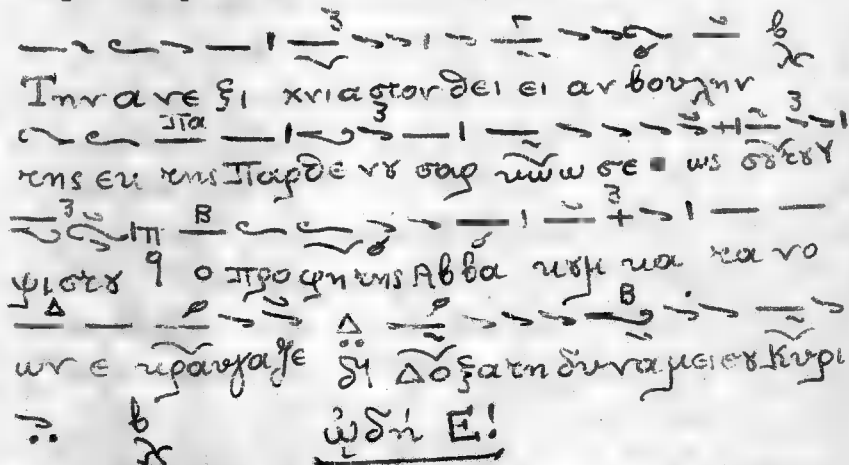 Την α νε ξι χνιαστον θει ει αν βουλην
της εκ της Παρθε νου σαρ κωω σε ως σου του υ
ψιστου ο προφητης Αββα κουμ κα τα νο
ων ε κραυγαζε Δοξα τη δυναμει σου Κυρι
ᾠδή Ε!